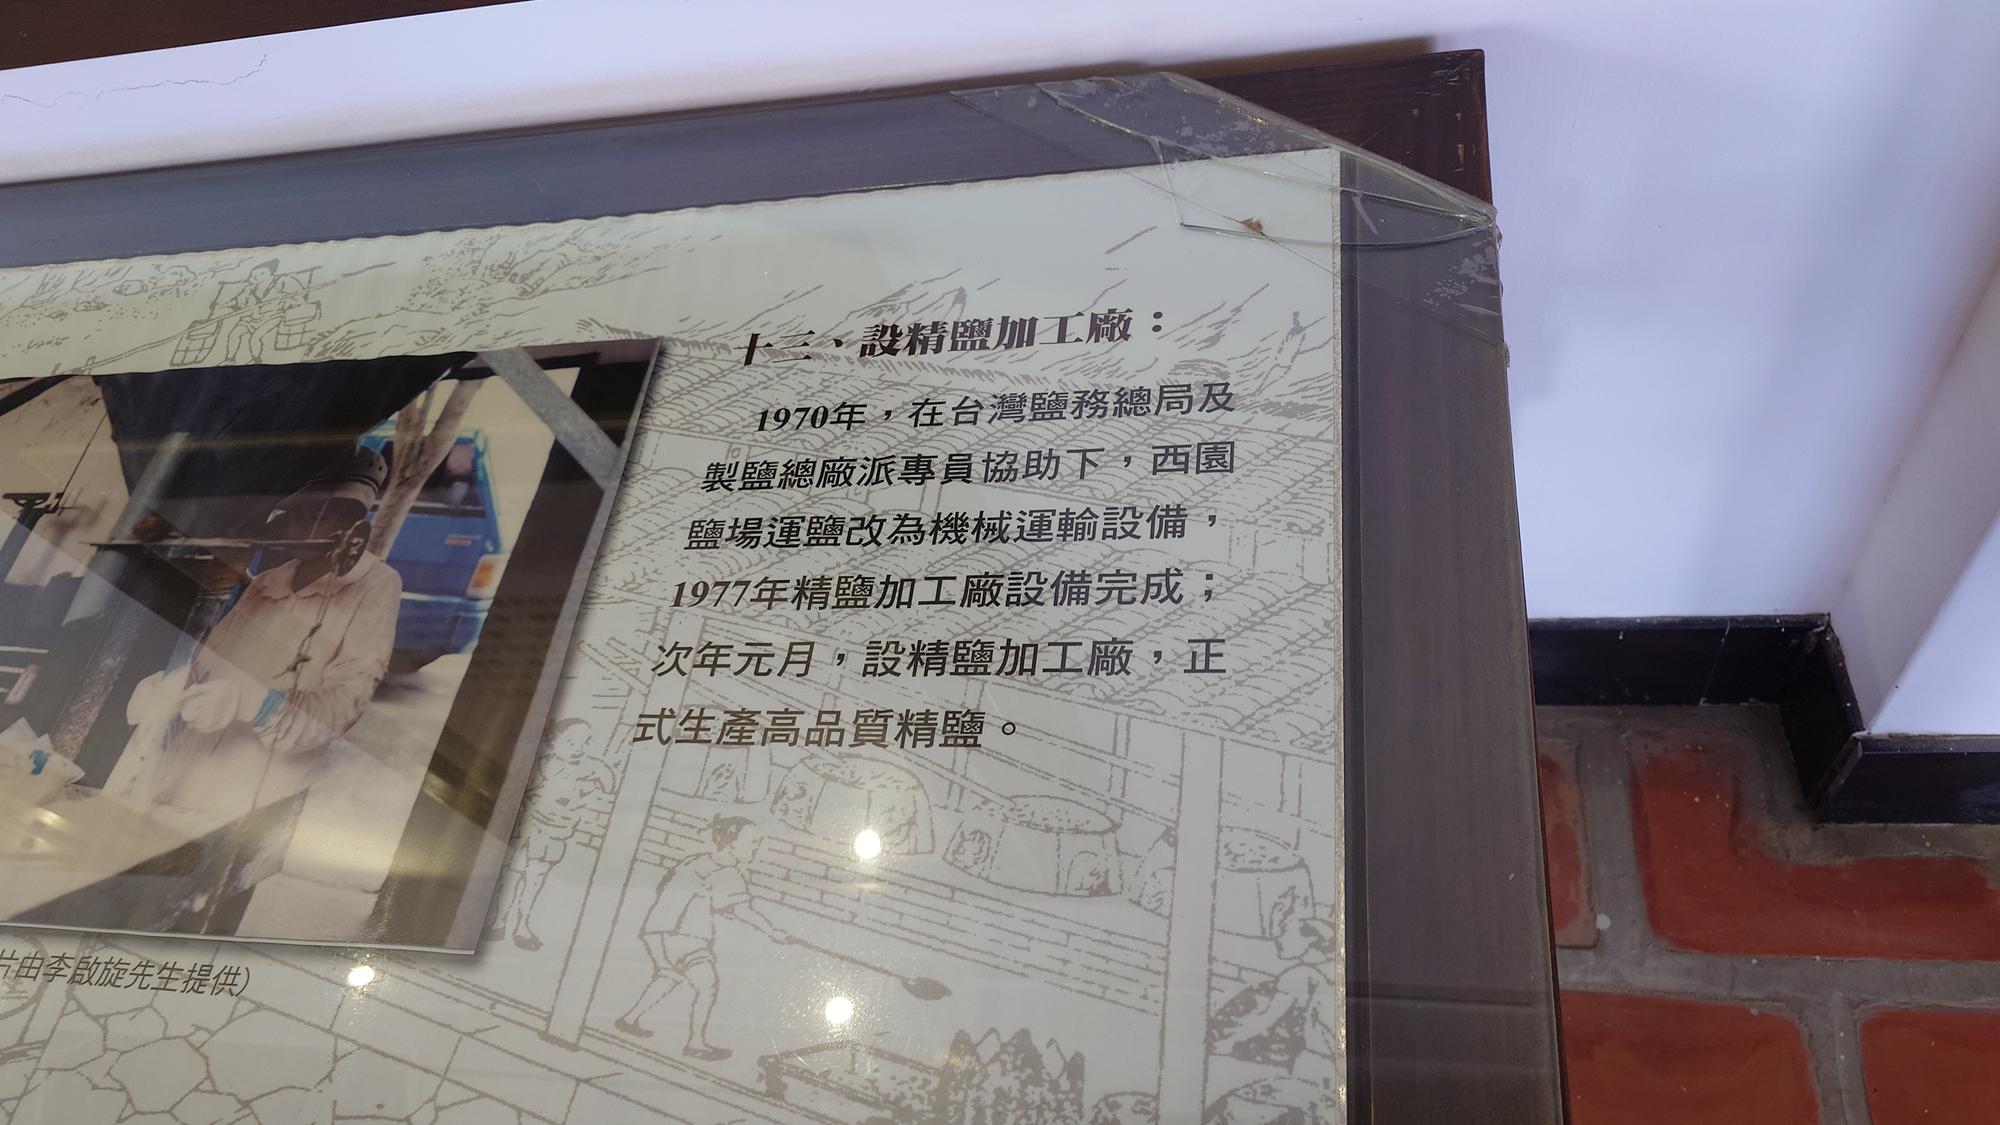 十三、設精鹽加工廠：
1970年，在台灣鹽務總局及
製鹽總廠派專員協助下，西園
鹽場運鹽改為機械運輸設備，
1977年精鹽加工廠設備完成；
次年元月，設精鹽加工廠，正
式生產高品質精鹽。
片由李啟旋先生提供）